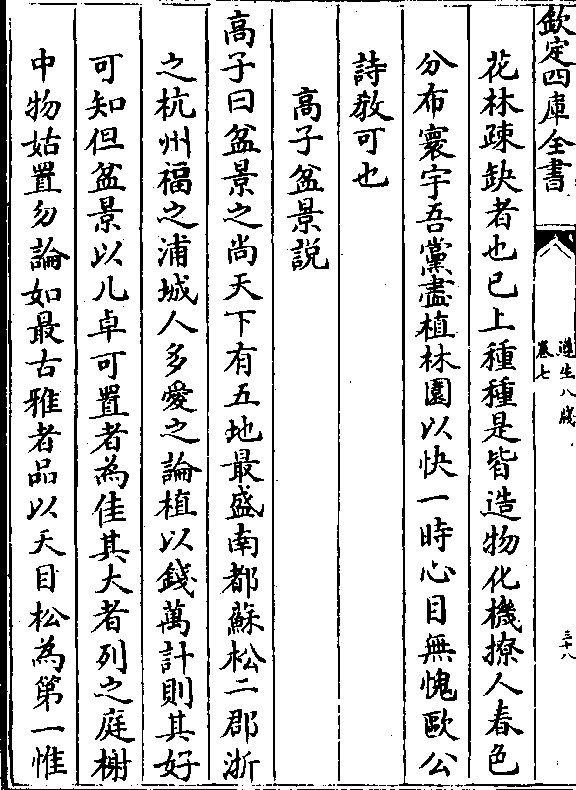 欽定四庫全書
遵生八牋
卷七
三十八
花林疎缺者也已上種種是皆造物化機撩人春色
分布寰宇吾黨盡植林園以快一時心目無愧歐公
詩教可也
高子盆景説
高子曰盆景之尚天下有五地最盛南都蘇松二郡浙
之杭州福之浦城人多愛之論植以錢萬計則其好
可知但盆景以几卓可置者為佳其大者列之庭榭
中物姑置勿論如最古雅者品以天目松為第一惟